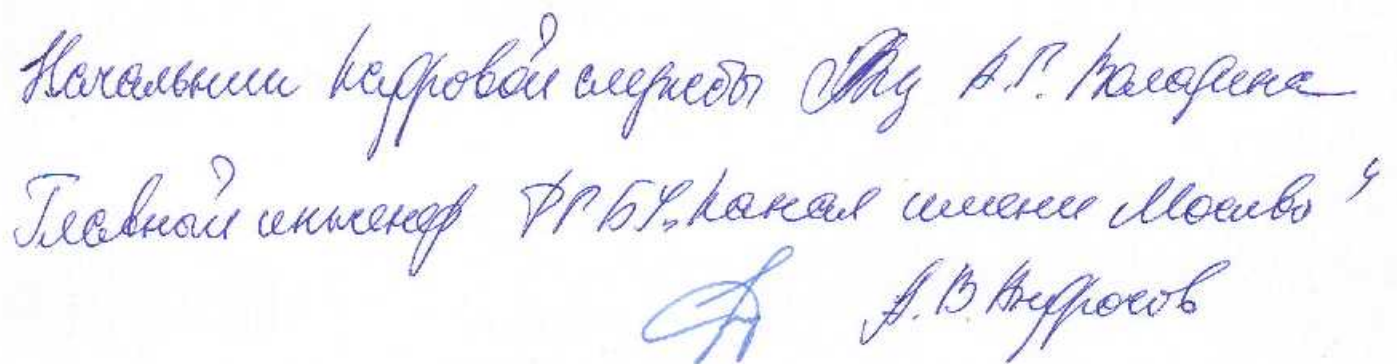 Начальник кадровой службы А.Г. Володина
Главный инженер ФГБУ "Канал имени Москвы"
А.В. Андросов